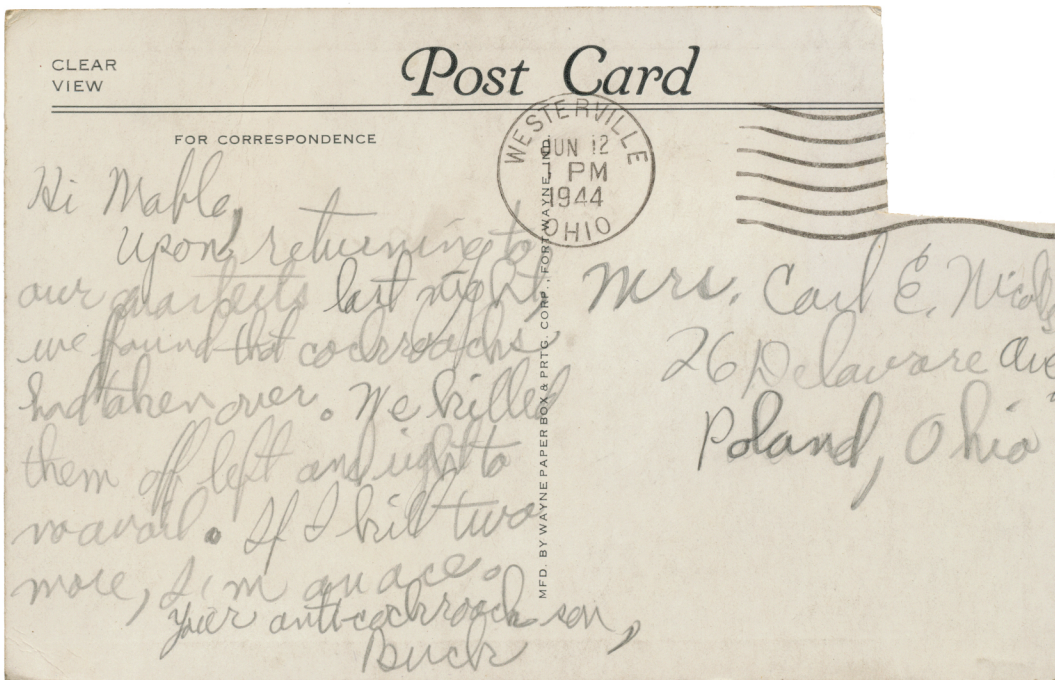 CLEAR
VIEW
Post Card
FOR CORRESPONDENCE
WESTERVILLE
JUN 12
1 PM
1944
OHIO
Hi Mable,
Upon returning to
our quarters last night,
we found that cockroachs
had taken over. We killed
them off left and right to
no avail. If I kill two
more, I'm an ace.
Your anti-cockroach son,
Buck
MFD. BY WAYNE PAPER BOX & PRTG. CORP., FORT WAYNE, IND.
Mrs. Carl E.
26 Delaware Ave
Poland, Ohio